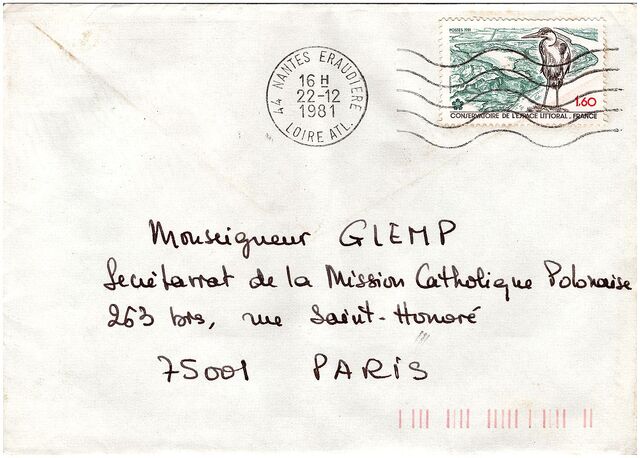 44 NANTES ERAUDIERE
16 H
22-12
1981
LOIRE ATL.
POSTES 1981
1.60
CONSERVATOIRE DE L'ESPACE LITTORAL. FRANCE
Monseigneur GLEMP
Secrétariat de la Mission Catholique Polonaise
263 bis, rue Saint-Honoré
75001 PARIS